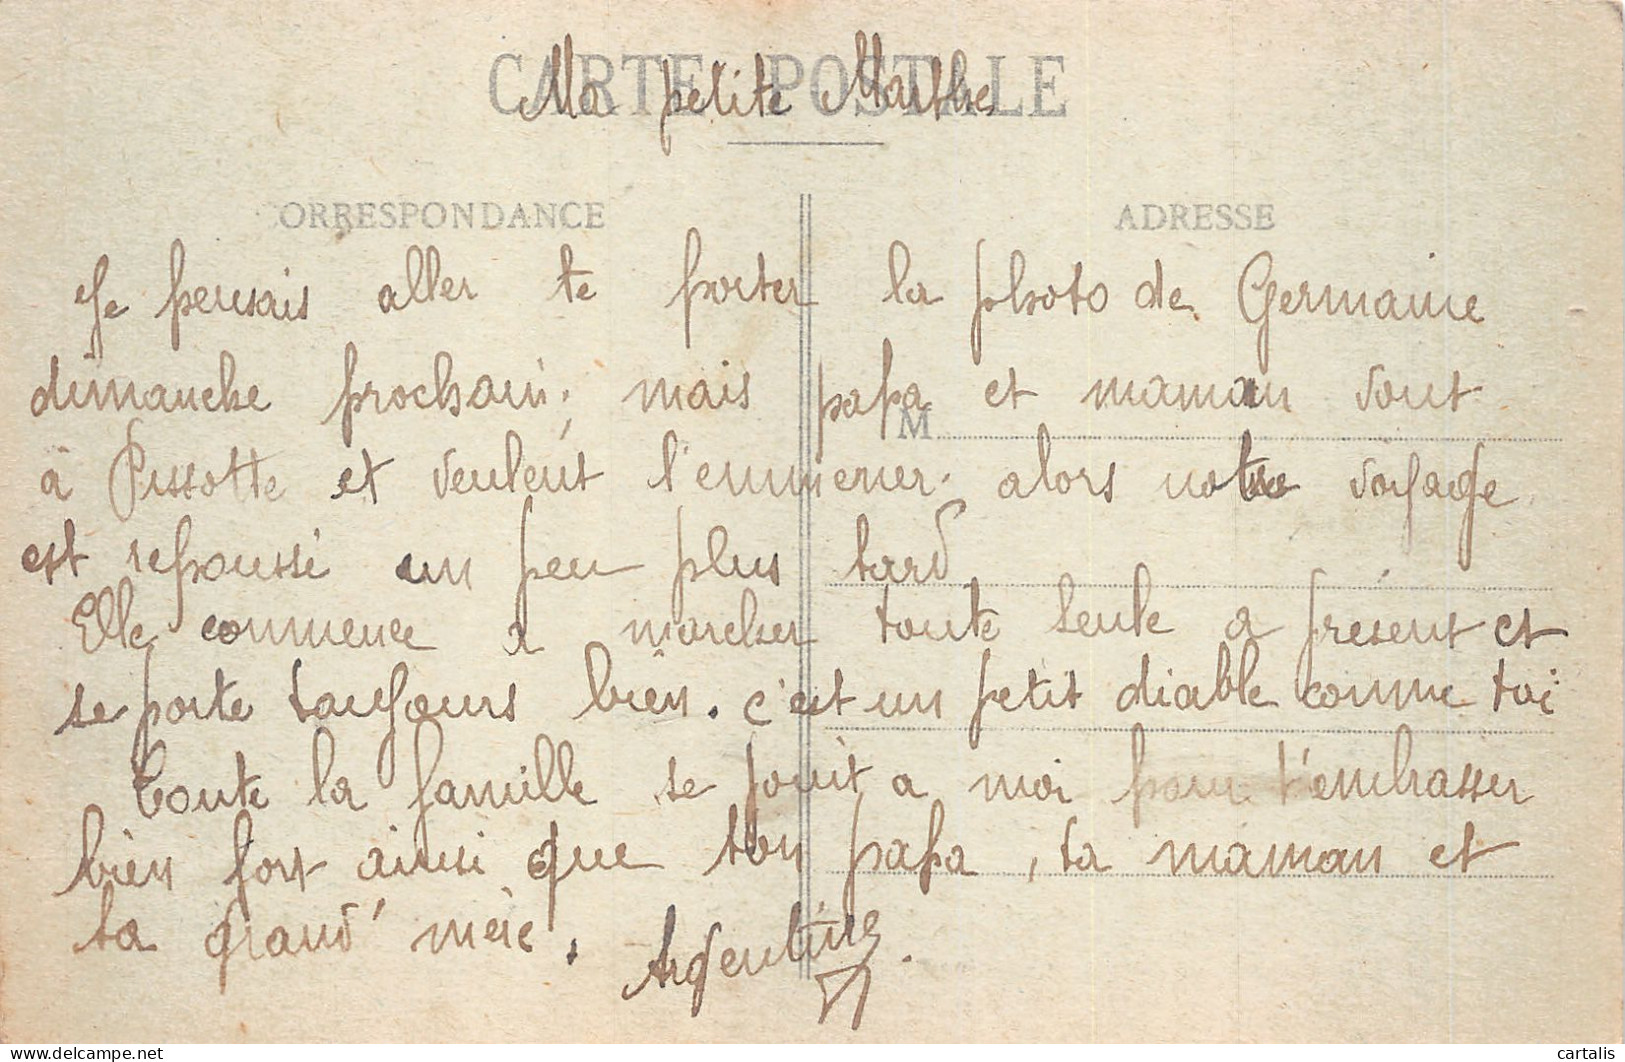 CARTE POSTALE
Ma petite Marthe
CORRESPONDANCE
ADRESSE
Je pensais aller te porter la photo de Germaine
dimanche prochain; mais papa et maman vont
M
à Pissotte et veulent l'emmener. alors notre voyage
est repoussé un peu plus tard
Elle commence a marcher toute seule a présent et
se porte toujours bien. c'est un petit diable comme toi
Toute la famille se joint a moi pour t'embrasser
bien fort ainsi que ton papa, ta maman et
ta grand'mère.
Argentine.
delcampe.net
cartalis